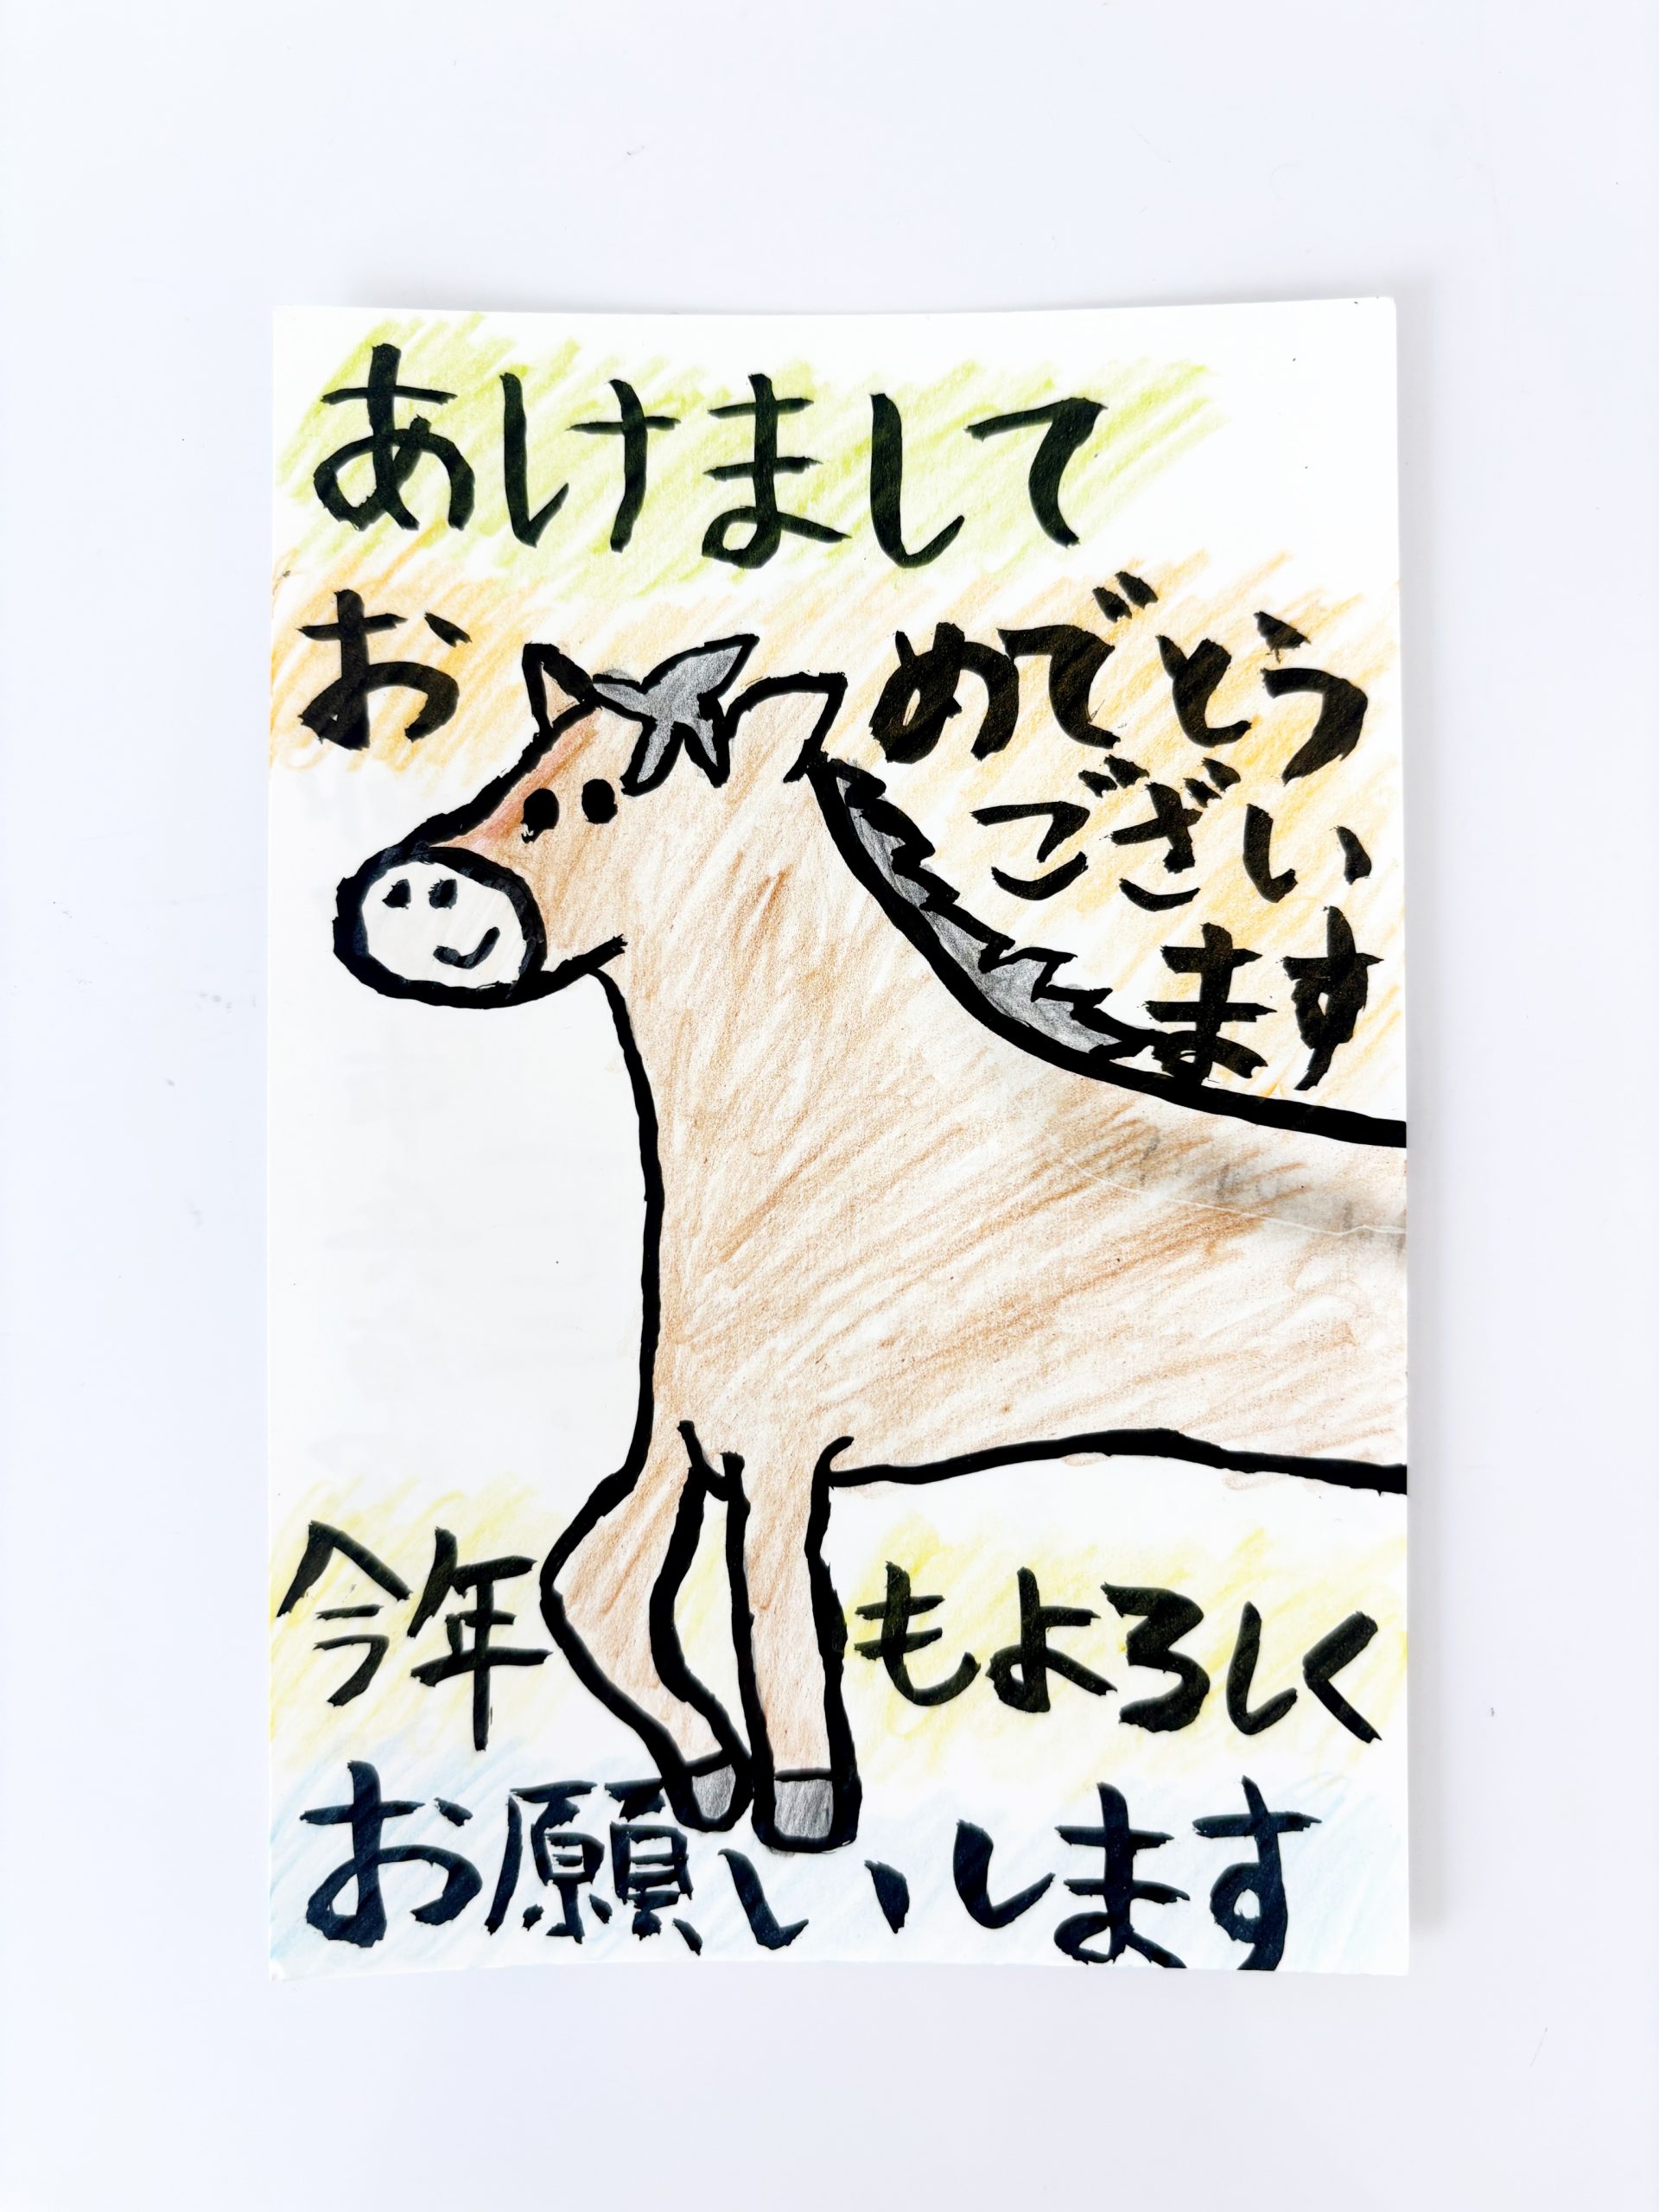 あけまして
おめでとう
ござい
ます
今年もよろしく
お願いします